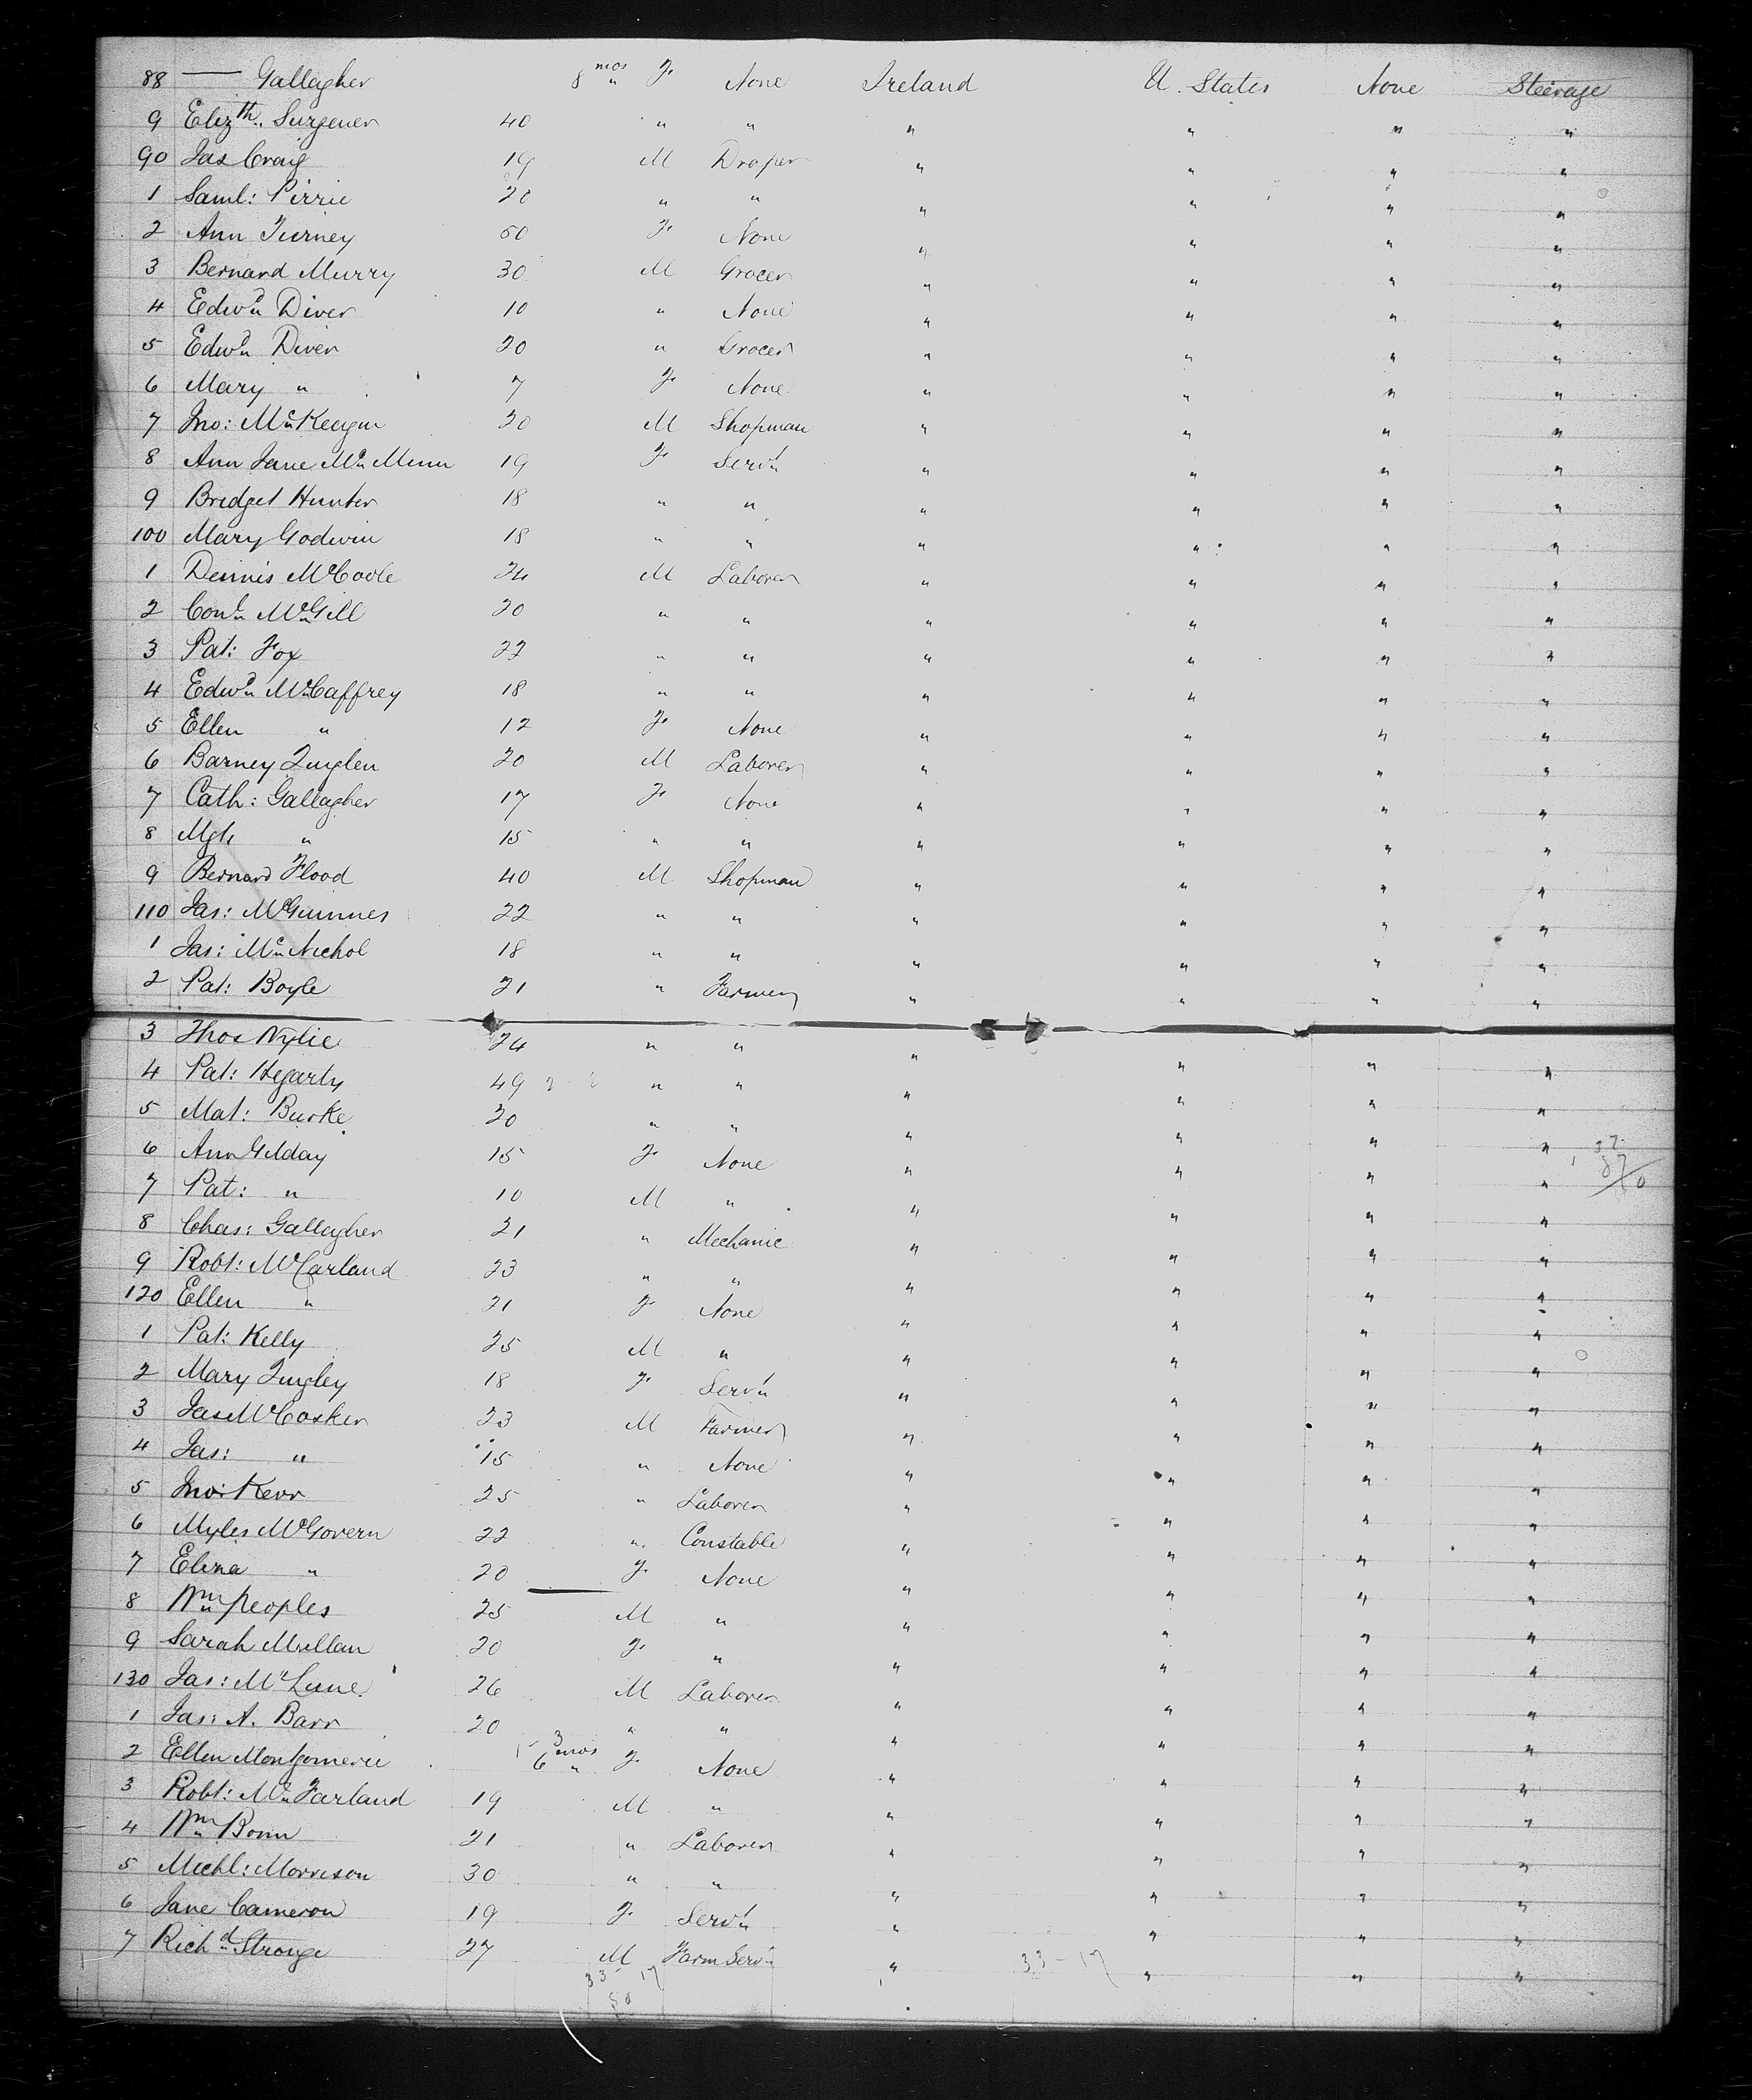 88 — Gallagher 8 mos " F None Ireland U. States None Steerage
9 Elizth. Surgener 40 " " " " " "
90 Jas Craig 19 M Draper " " " "
1 Saml: Pirrie 20 " " " " " "
2 Ann Tierney 50 F None " " " "
3 Bernard Murry 30 M Grocer " " " "
4 Edwd Diver 10 " None " " " "
5 Edwd Diver 20 " Grocer " " " "
6 Mary " 7 F None " " " "
7 Jno: McKeegin 20 M Shopman " " " "
8 Ann Jane McMinn 19 F Servt " " " "
9 Bridget Hunter 18 " " " " " "
100 Mary Godwin 18 " " " " " "
1 Dennis McCoole 24 M Laborer " " " "
2 Conl McGill 20 " " " " " "
3 Pat: Fox 22 " " " " " "
4 Edwd McCaffrey 18 " " " " " "
5 Ellen " 12 F None " " " "
6 Barney Quglen 20 M Laborer " " " "
7 Cath: Gallagher 17 F None " " " "
8 Mgt " 15 " " " " " "
9 Bernard Flood 40 M Shopman " " " "
110 Jas: McGuinnes 22 " " " " " "
1 Jas: McNichol 18 " " " " " "
2 Pat: Boyle 21 " Farmer " " " "
3 Thos Wylie 24 " " " " " "
4 Pat: Hegarty 49 " " " " " "
5 Mat: Burke 20 " " " " " "
6 Ann Gilday 15 F None " " " "
7 Pat: " 10 M " " " " "
8 Chas: Gallagher 21 " Mechanic " " " "
9 Robt: McCarland 23 " " " " " "
120 Ellen " 21 F None " " " "
1 Pat: Kelly 25 M " " " " "
2 Mary Quigley 18 F Servt " " " "
3 Jas McCosker 23 M Farmer " " " "
4 Jas: " 15 " None " " " "
5 Jno: Kerr 25 " Laborer " " " "
6 Myles McGovern 22 " Constable " " " "
7 Eliza " 20 F None " " " "
8 Wm Peoples 25 M " " " " "
9 Sarah Mullan 20 F " " " " "
130 Jas: McLune 26 M Laborer " " " "
1 Jas: A. Barr 20 " " " " " "
2 Ellen Montgomerie 6 mos " F None " " " "
3 Robt: McFarland 19 M " " " " "
4 Wm Bonn 21 " Laborer " " " "
5 Michl: Morrison 30 " " " " " "
6 Jane Cameron 19 F Servt " " " "
7 Richd Stronge 27 M Farm Servt " 33-17 " " "
33 17
50